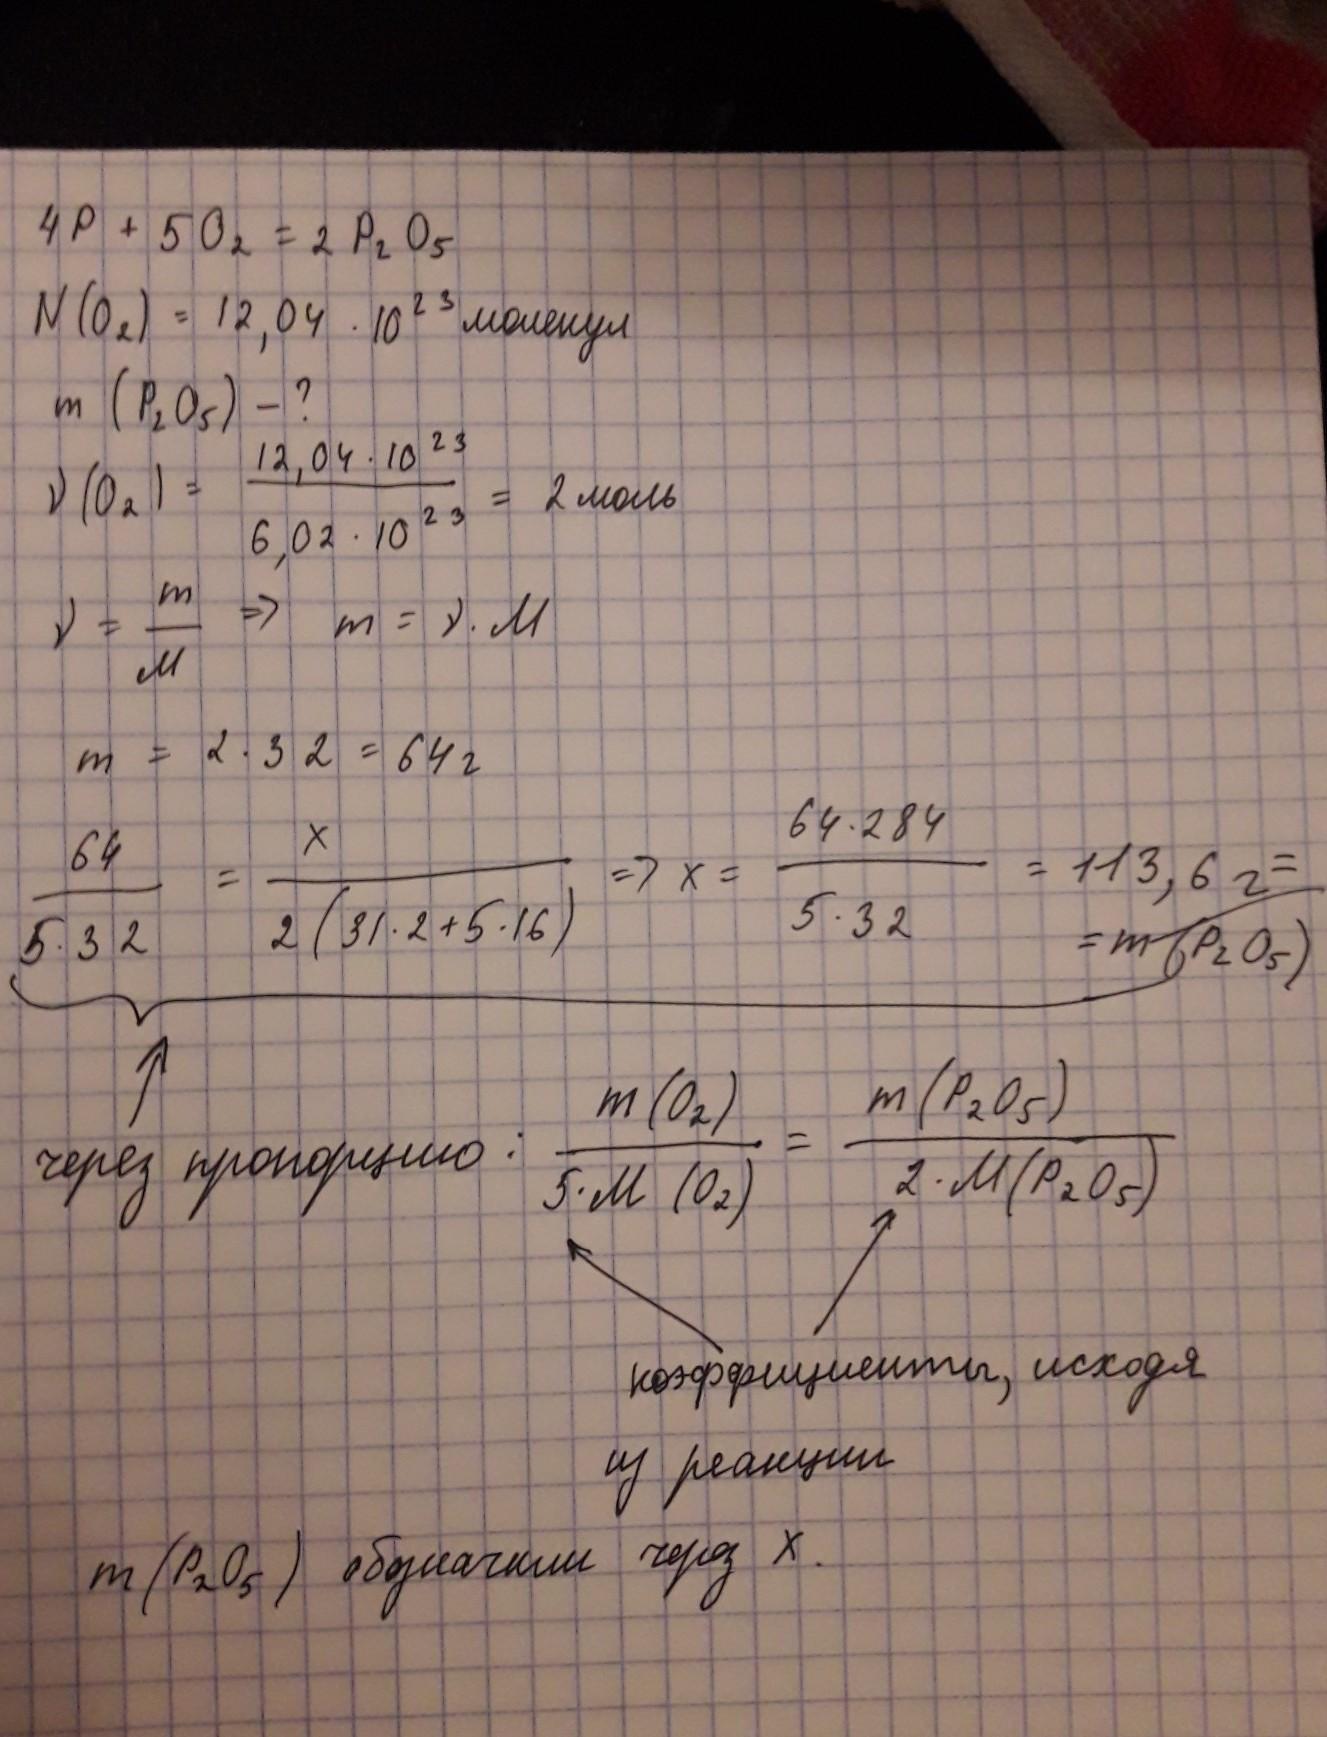 4P + 5O₂ = 2P₂O₅
N(O₂) = 12,04 · 10²³ молекул
m(P₂O₅) – ?
ν(O₂) = 12,04 · 10²³ / 6,02 · 10²³ = 2 моль
ν = m / M => m = ν · M
m = 2 · 32 = 64 г
64 / 5·32 = x / 2(31·2+5·16) => x = 64·284 / 5·32 = 113,6 г =
= m(P₂O₅)
через пропорцию: m(O₂) / 5·M(O₂) = m(P₂O₅) / 2·M(P₂O₅)
коэффициенты, исходя
из реакции
m(P₂O₅) обозначили через x.